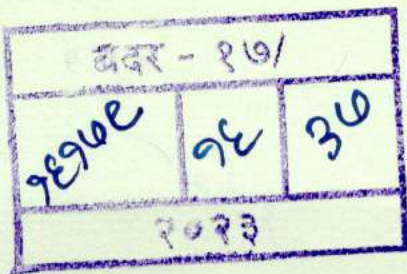 बदर - १७/
१६१७९ १६ ३७
२०२३